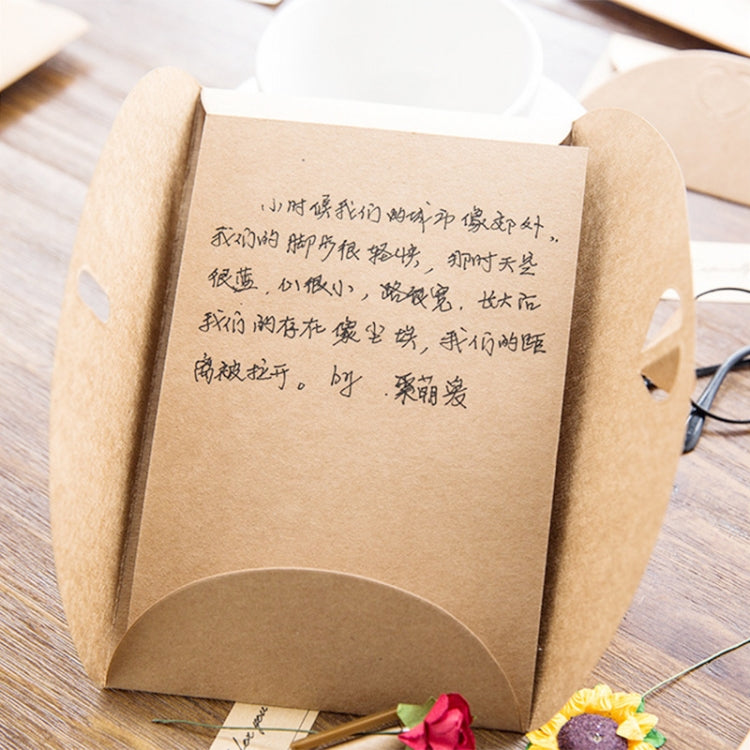 小时候我们的城市像郊外,
我们的脚步很轻快,那时天空
很蓝,心很小,路很宽,长大后
我们的存在像尘埃,我们的距
离被拉开。by .栗萌爱
for you